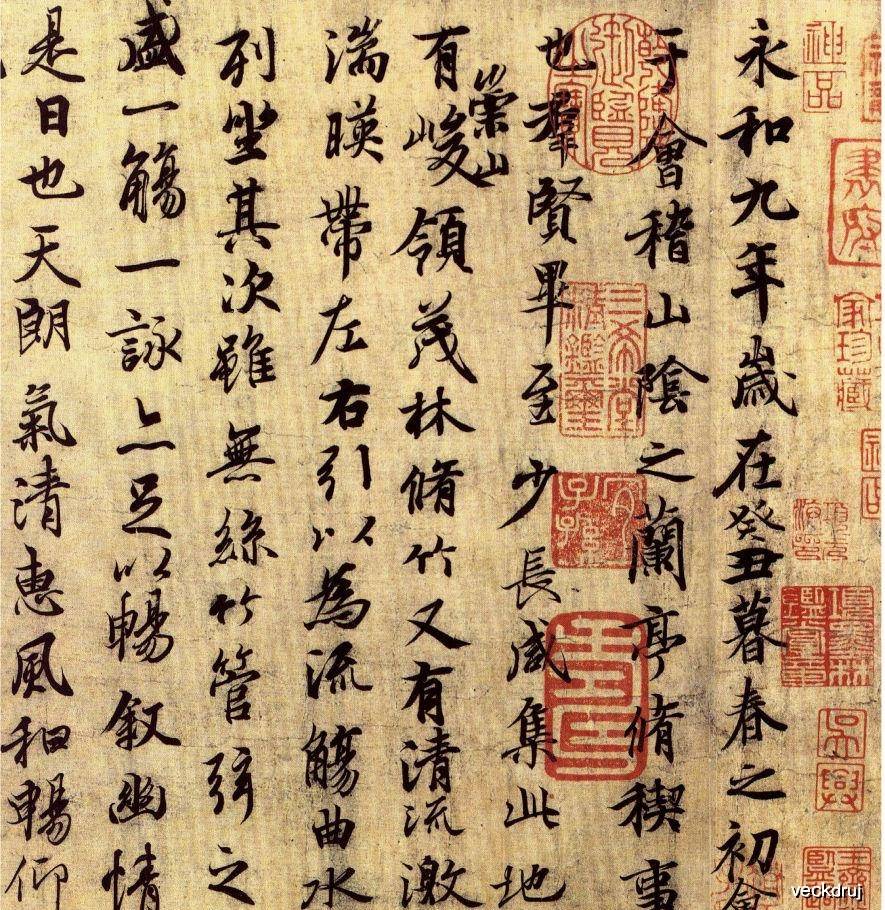 神品
吳興
永和九年歲在癸丑暮春之初會
于會稽山陰之蘭亭脩稧事
也羣賢畢至少長咸集此地
三希堂精鑑璽
有崇山峻領茂林脩竹又有清流激
湍暎帶左右引以為流觴曲水
列坐其次雖無絲竹管弦之
盛一觴一詠亦足以暢叙幽情
是日也天朗氣清惠風和暢仰
veckdruj